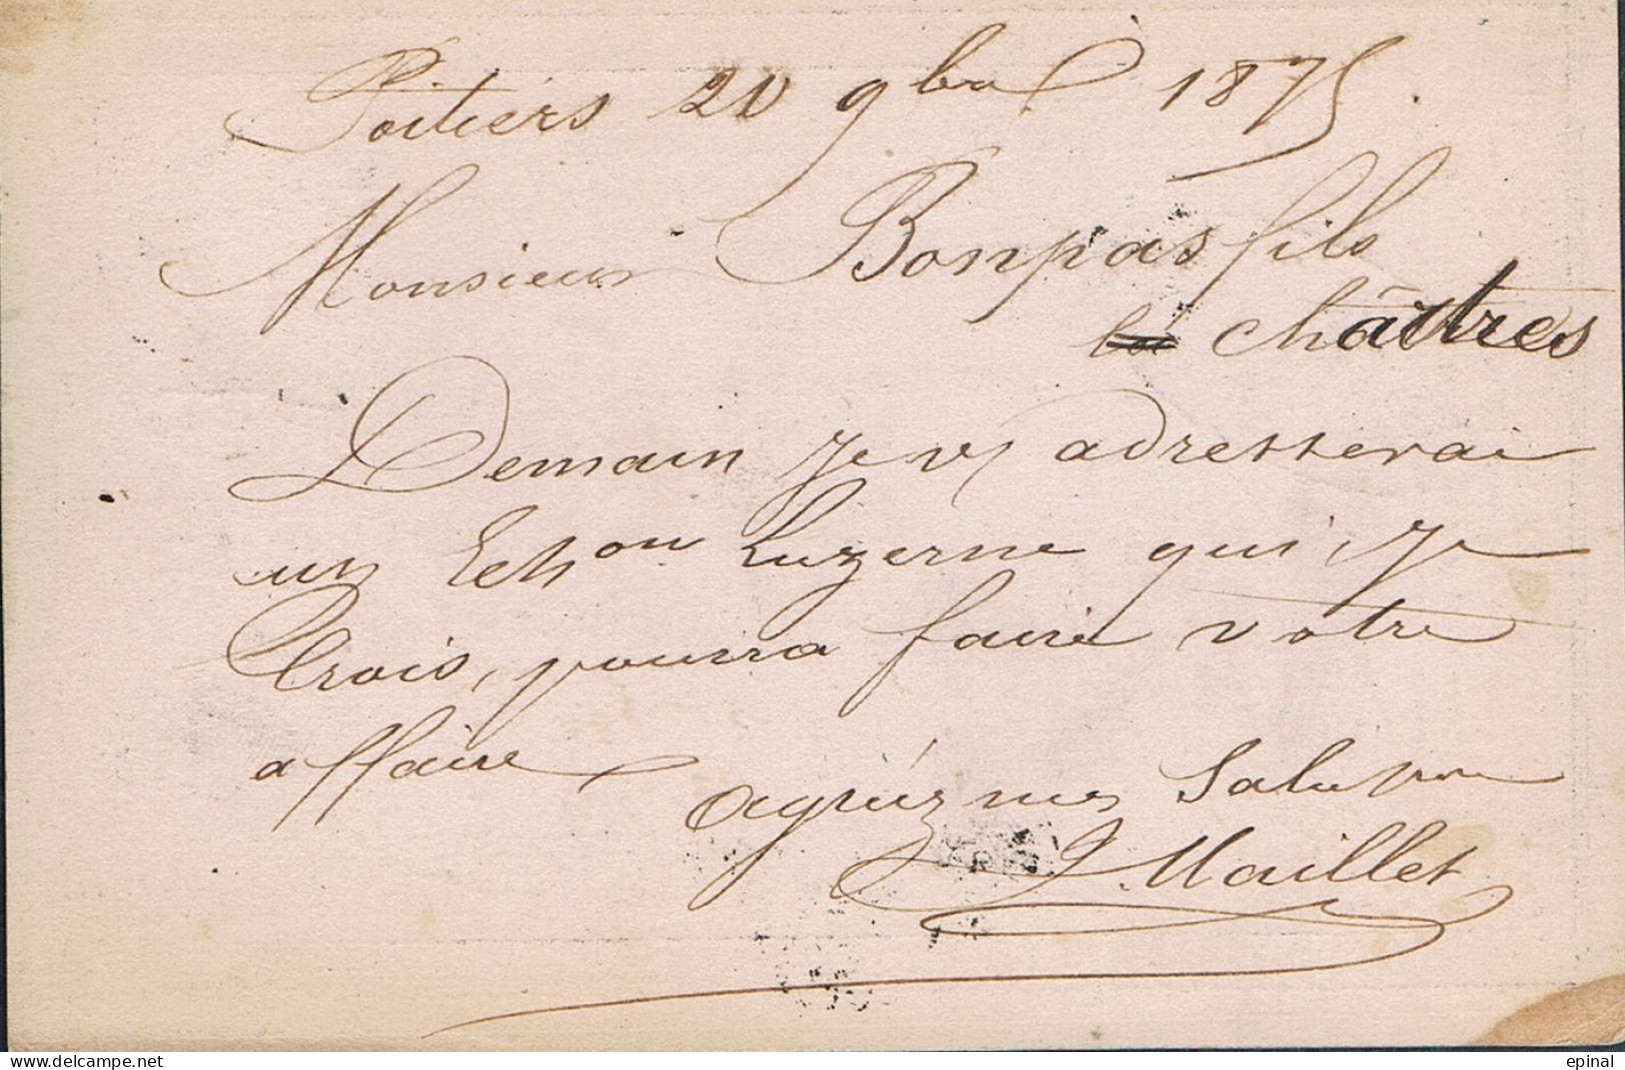 Poitiers 20 9bre 1875.
Monsieur Bonpas fils
la chârtres
Demain je vs adresserai
un Echon Luzerne qui, je
Crois, pourra faire votre
affaire
agréez mes Salutons
J Maillet
delcampe.net
epinal